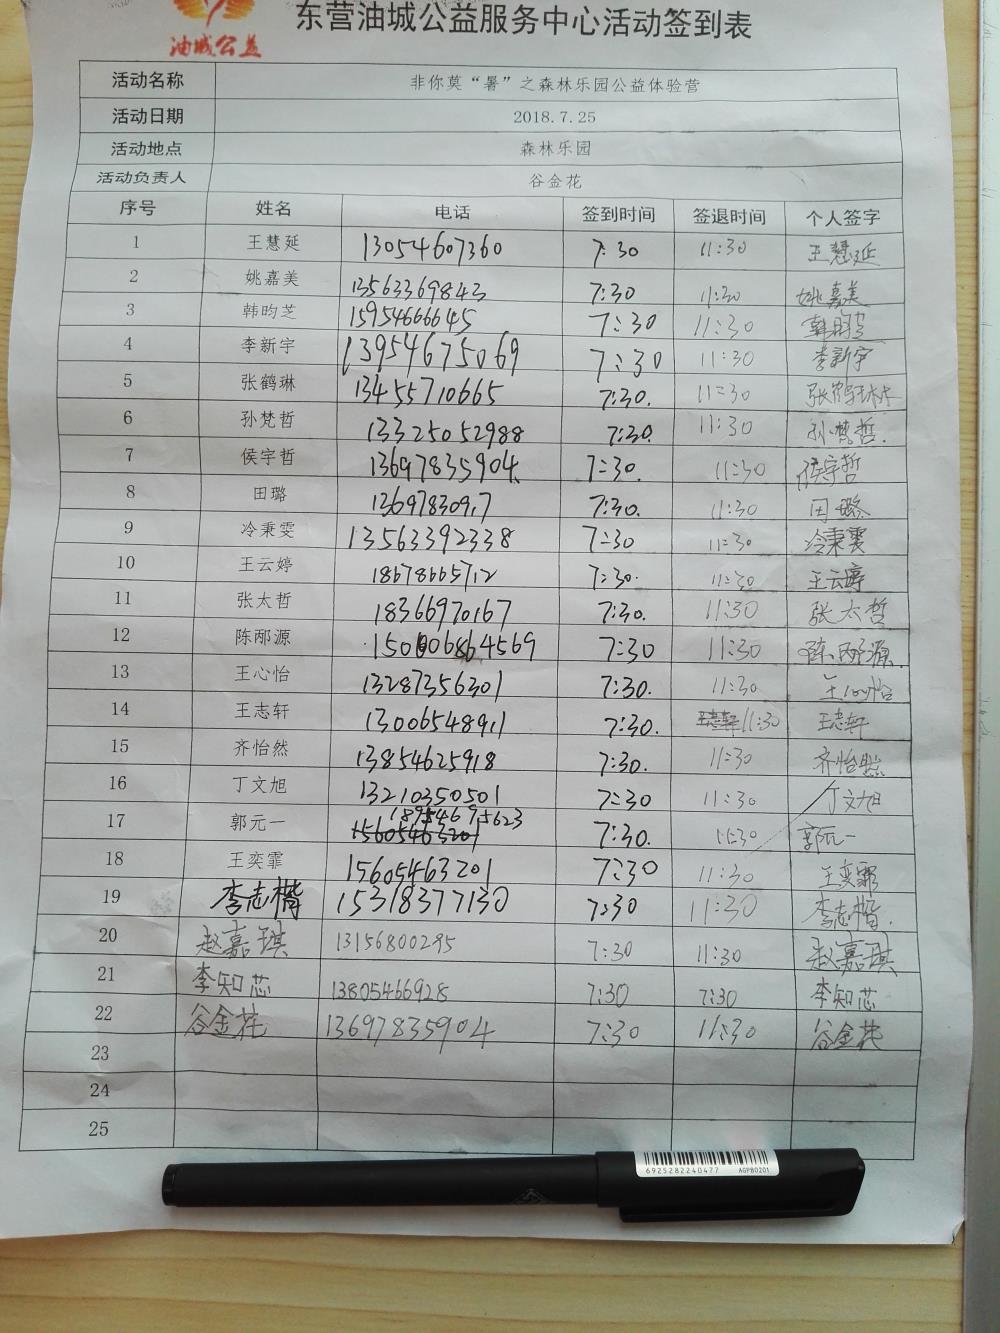 油城公益
东营油城公益服务中心活动签到表
活动名称 非你莫“暑”之森林乐园公益体验营
活动日期 2018.7.25
活动地点 森林乐园
活动负责人 谷金花
序号 姓名 电话 签到时间 签退时间 个人签字
1 王慧延 13054607360 7:30 11:30 王慧延
2 姚嘉美 13563369843 7:30 11:30 姚嘉美
3 韩昀芝 15954666645 7:30 11:30 韩昀芝
4 李新宇 13954675069 7:30 11:30 李新宇
5 张鹤琳 13455710665 7:30. 11:30 张鹤琳
6 孙梵哲 13325052988 7:30. 11:30 孙梵哲.
7 侯宇哲 13697835904. 7:30. 11:30 侯宇哲
8 田璐 13697830917 7:30. 11:30 田璐
9 冷秉雯 13563392338 7:30 11:30 冷秉雯
10 王云婷 18678665712 7:30. 11:30 王云婷
11 张太哲 18366970167 7:30. 11:30 张太哲
12 陈邴源 7:30 11:30 陈邴源.
13 王心怡 13287356301 7:30. 11:30 王心怡
14 王志轩 13006548911 7:30. 王志轩 11:30 王志轩
15 齐怡然 13854625918 7:30. 11:30 齐怡然
16 丁文旭 13210350501 7:30 11:30 丁文旭
17 郭元一 18954695623 15605463201 7:30. 11:30 郭元一
18 王奕霏 15605463201 7:30 11:30 王奕霏
19 李志楷 15318377130 7:30 11:30 李志楷.
20 赵嘉琪 13156800295 7:30 11:30 赵嘉琪
21 李知芯 13805466928 7:30 7:30 李知芯
22 谷金花 13697835904 7:30 11:30 谷金花
23
24
25
6925282240477 AGPB0201